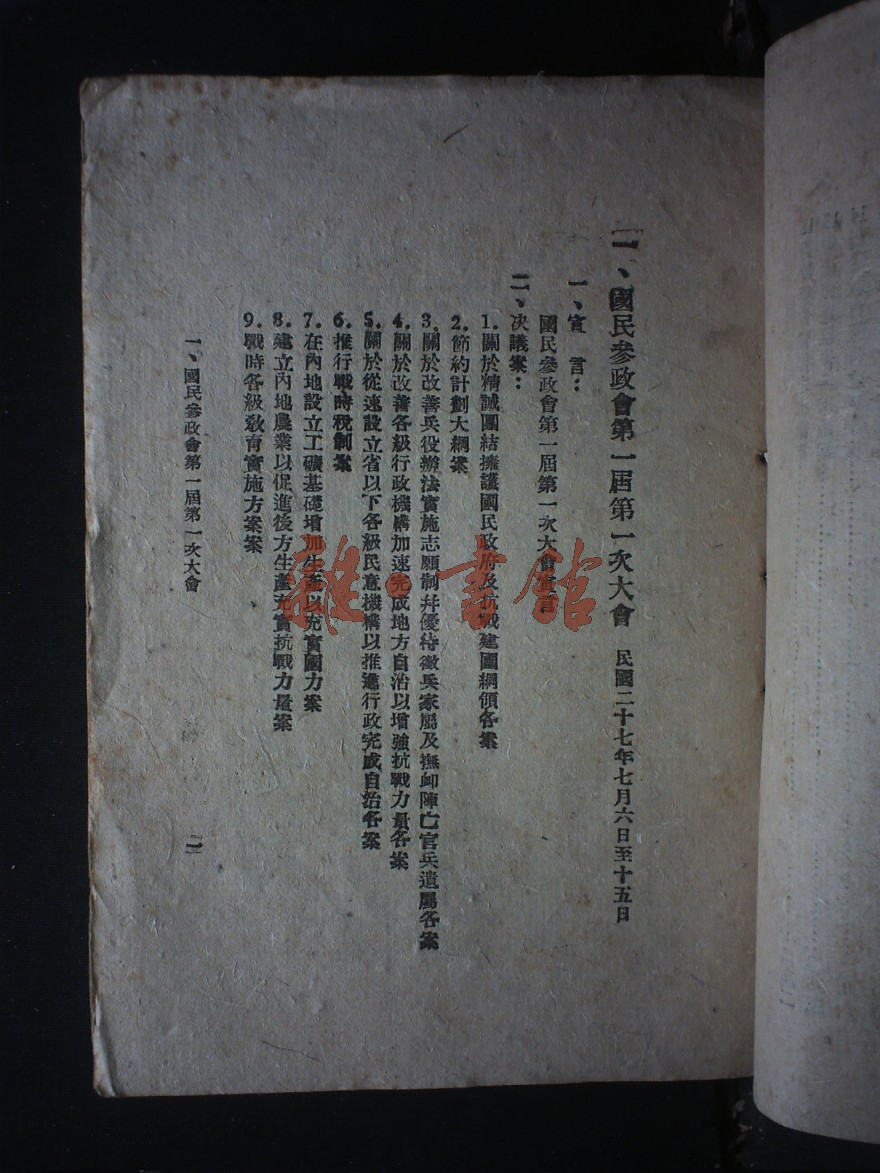 一、國民參政會第一屆第一次大會 民國二十七年七月六日至十五日
一、宣言：
國民參政會第一屆第一次大會宣言
二、決議案：
1.關於精誠團結擁護國民政府及抗戰建國綱領各案
2.節約計劃大綱案
3.關於改善兵役辦法實施志願制幷優待徵兵家屬及撫卹陣亡官兵遺屬各案
4.關於改善各級行政機構加速完成地方自治以增強抗戰力量各案
5.關於從速設立省以下各級民意機構以推進行政完成自治各案
6.推行戰時稅制案
7.在內地設立工礦基礎增加生產以充實國力案
8.建立內地農業以促進後方生產充實抗戰力量案
9.戰時各級教育實施方案案
一、國民參政會第一屆第一次大會
雜·書館